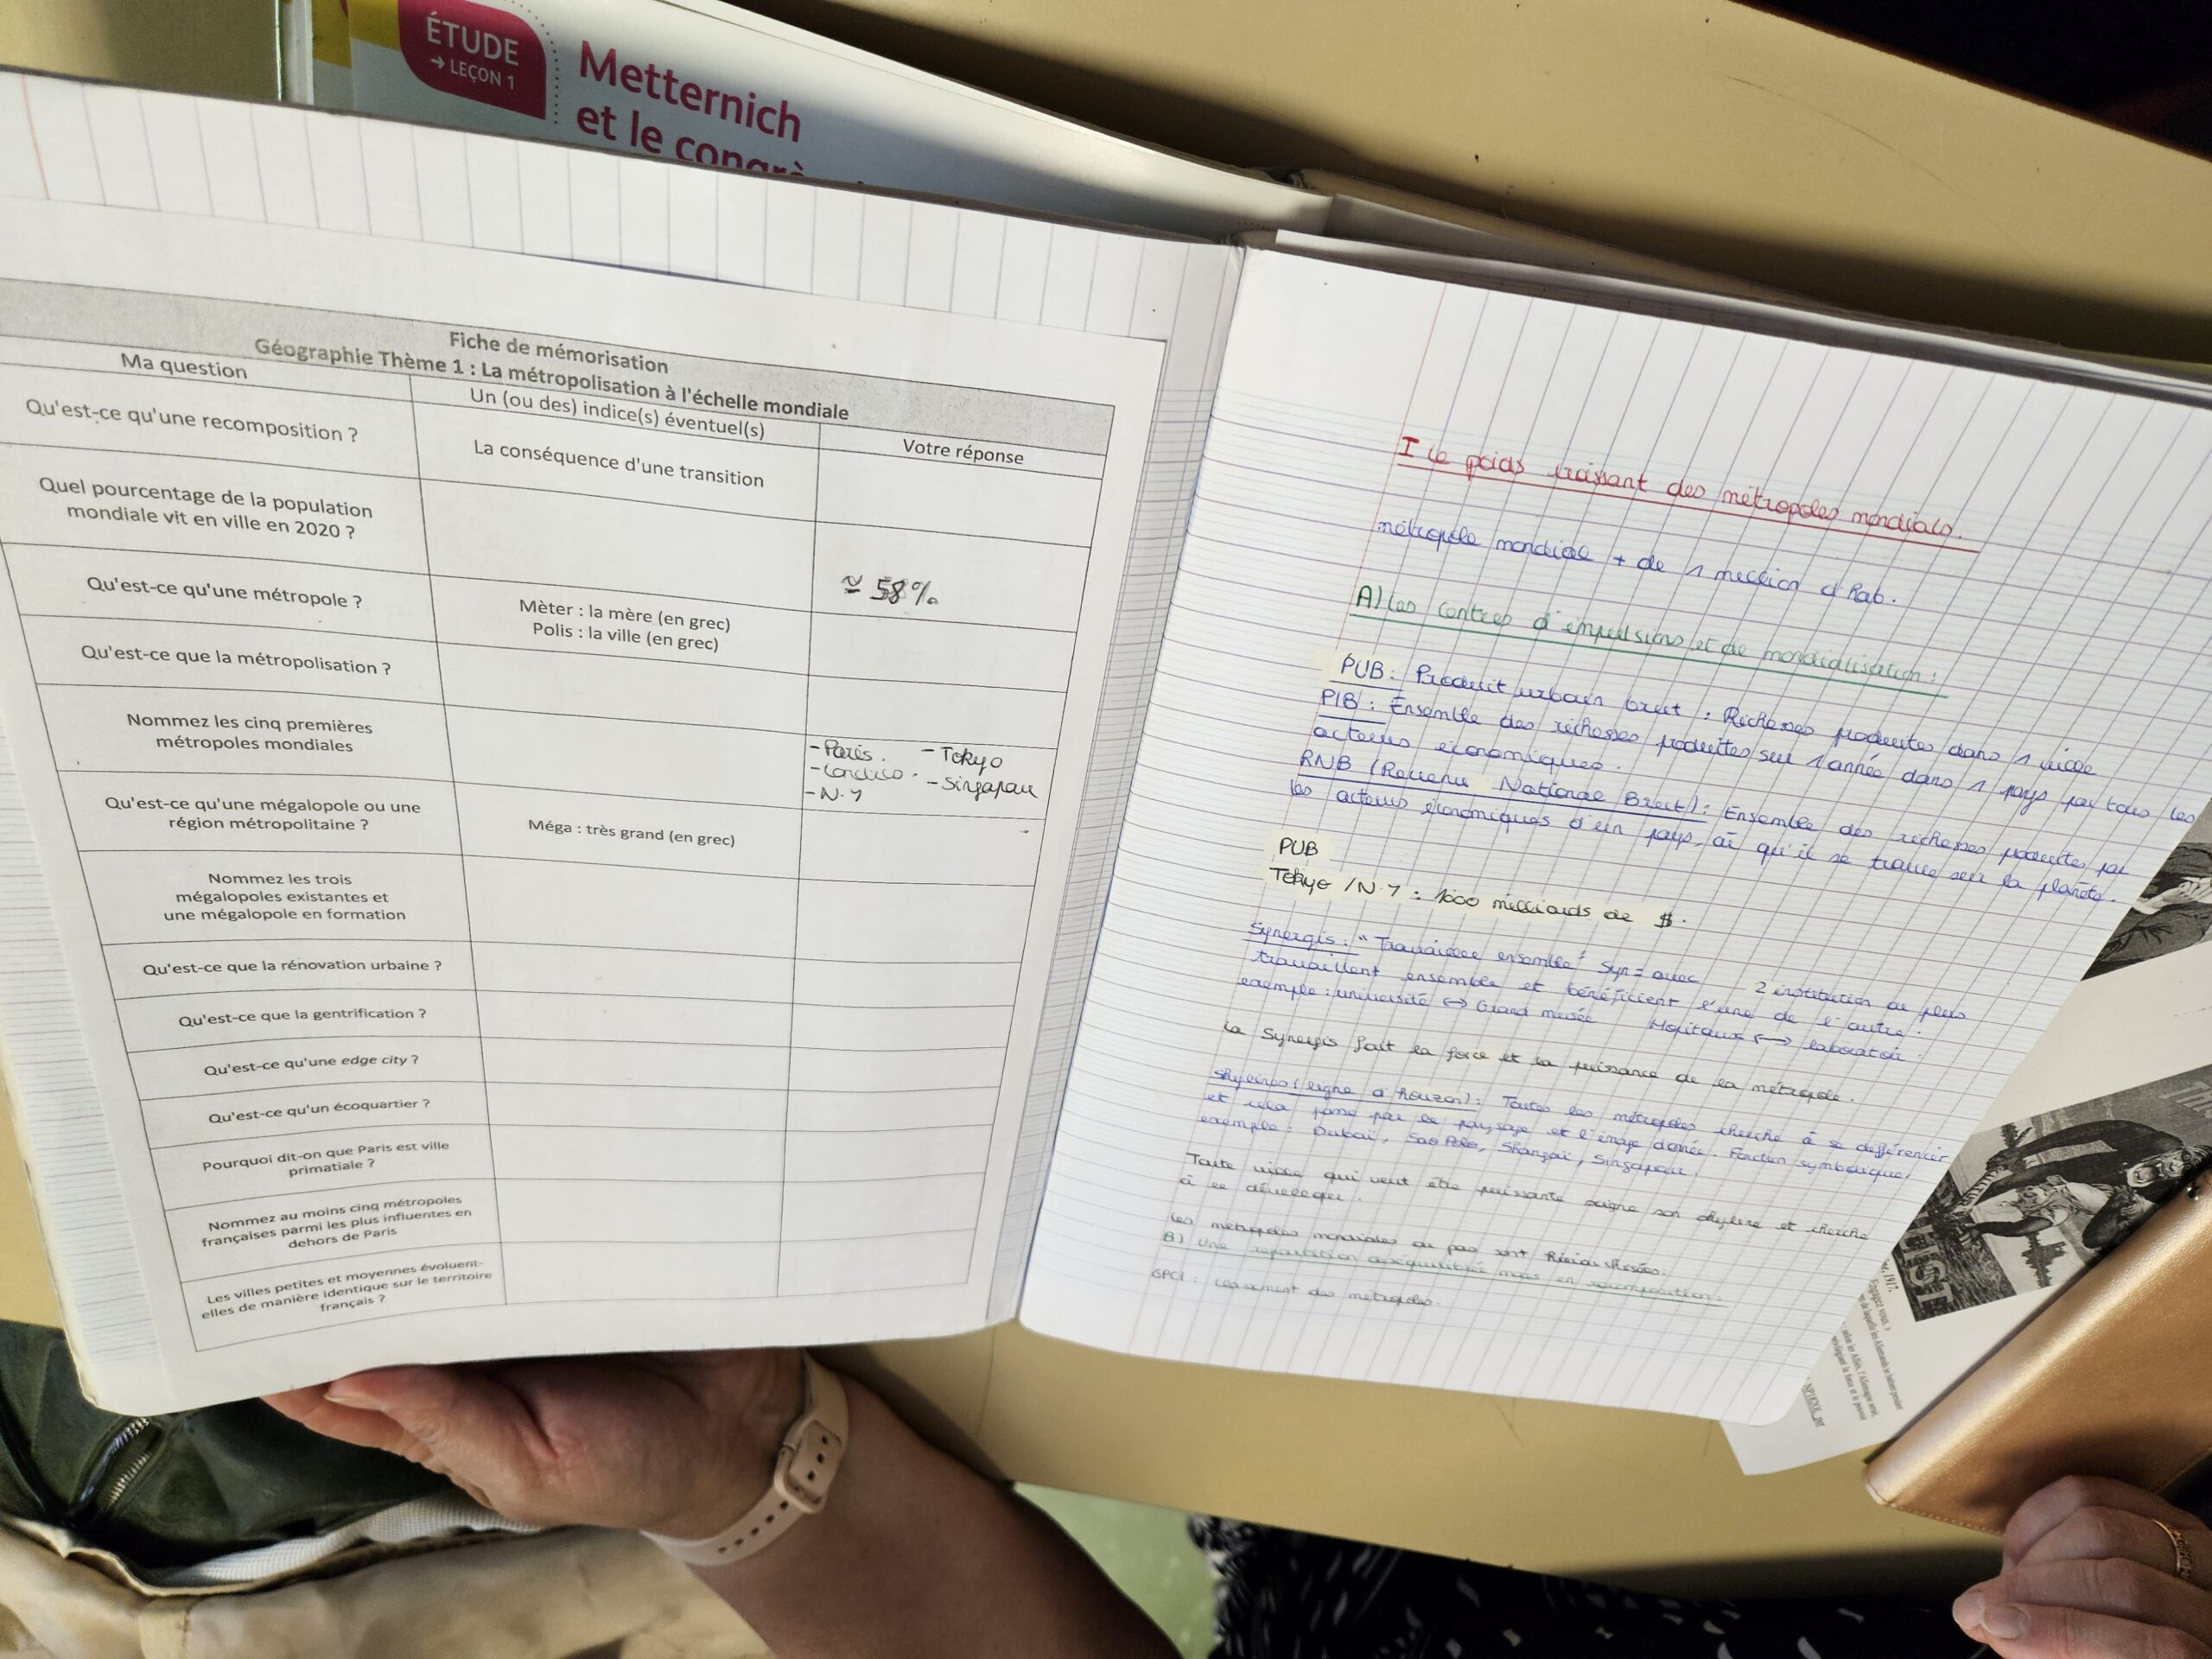 ÉTUDE
→ LEÇON 1
Metternich
et le congrè
Fiche de mémorisation
Géographie Thème 1 : La métropolisation à l'échelle mondiale
Ma question
Un (ou des) indice(s) éventuel(s)
Votre réponse
Qu'est-ce qu'une recomposition ?
La conséquence d'une transition
Quel pourcentage de la population
mondiale vit en ville en 2020 ?
≃ 58%
Qu'est-ce qu'une métropole ?
Mèter : la mère (en grec)
Polis : la ville (en grec)
Qu'est-ce que la métropolisation ?
Nommez les cinq premières
métropoles mondiales
- Paris. - Tokyo
- Londres. - Singapour
- N.Y
Qu'est-ce qu'une mégalopole ou une
région métropolitaine ?
Méga : très grand (en grec)
Nommez les trois
mégalopoles existantes et
une mégalopole en formation
Qu'est-ce que la rénovation urbaine ?
Qu'est-ce que la gentrification ?
Qu'est-ce qu'une edge city ?
Qu'est-ce qu'un écoquartier ?
Pourquoi dit-on que Paris est ville
primatiale ?
Nommez au moins cinq métropoles
françaises parmi les plus influentes en
dehors de Paris
Les villes petites et moyennes évoluent-
elles de manière identique sur le territoire
français ?
I Le poids croissant des métropoles mondials.
métropole mondiale + de 1 million d'hab.
A) Les centres d'impulsions et de mondialisation :
PUB : Produit urbain brut : Richesses produites dans 1 ville
PIB : Ensemble des richesses produites sur 1 année dans 1 pays par tous les
acteurs économiques.
RNB (Revenu National Brut) : Ensemble des richesses produites par
les acteurs économiques d'un pays, où qu'il se trouve sur la planète.
PUB
Tokyo / N.Y : 1600 milliards de $.
Synergis : "Travailler ensemble" Syn = avec 2 institution ou plus
travaillent ensemble et bénéficient l'une de l'autre.
exemple : université ↔ Grand musée Hopitaux ↔ laboratoir.
La Synergis fait la force et la puissance de la métropole.
Skylines (ligne d'horizon) : Toutes les métropoles cherche à se différencier
et cela passe par le paysage et l'image donnée. Fonction symbolique,
exemple : Dubaï, Sao Polo, Shangaï, Singapour.
Toute ville qui veut être puissante soigne son skyline et cherche
à le développer.
Les métropoles mondiales ou pas sont hiérarchisées.
B) Une répartition déséquilibrée mais en recomposition.
GPCI : classement des métropoles.